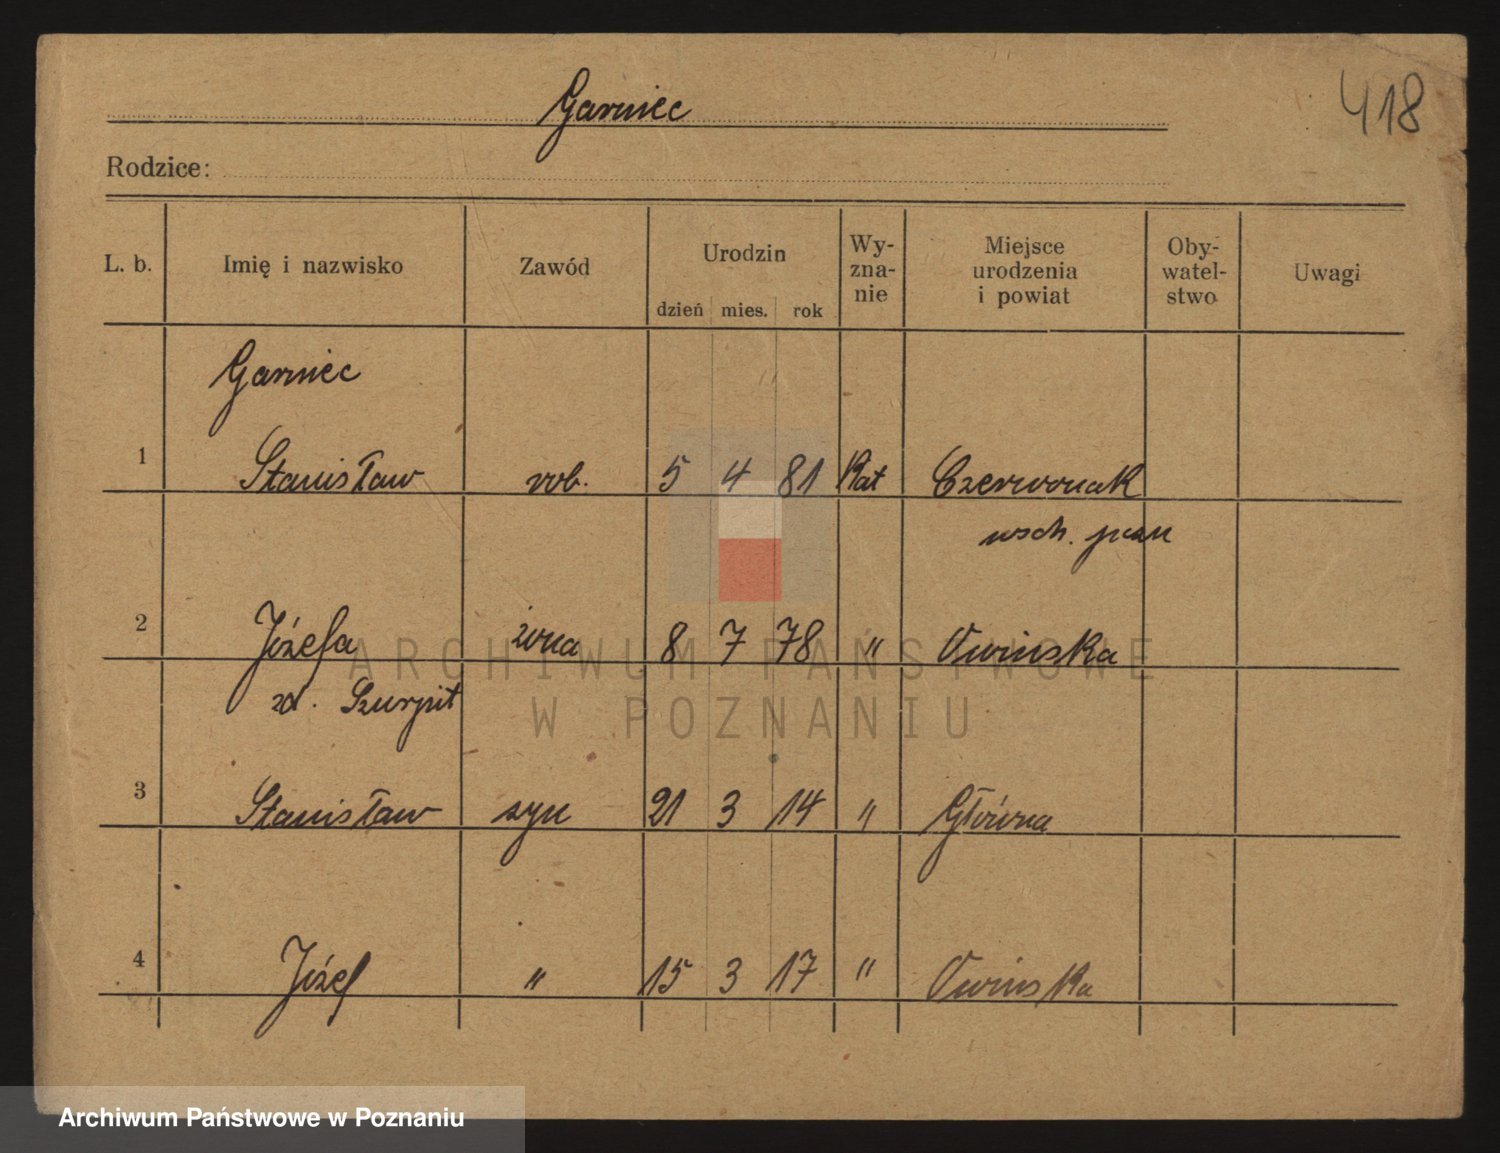 418
Garniec
Rodzice:
L. b. Imię i nazwisko Zawód Urodzin dzień mies. rok Wy-zna-nie Miejsce urodzenia i powiat Oby-watel-stwo Uwagi
Garniec
1 Stanisław rob. 5 4 81 Kat Czerwonak
wsch. pozn
2 Józefa żona 8 7 78 " Owińska
zd. Szurpit
3 Stanisław syn 21 3 14 " Główna
4 Józef " 15 3 17 " Owińska
ARCHIWUM PAŃSTWOWE
W POZNANIU
Archiwum Państwowe w Poznaniu